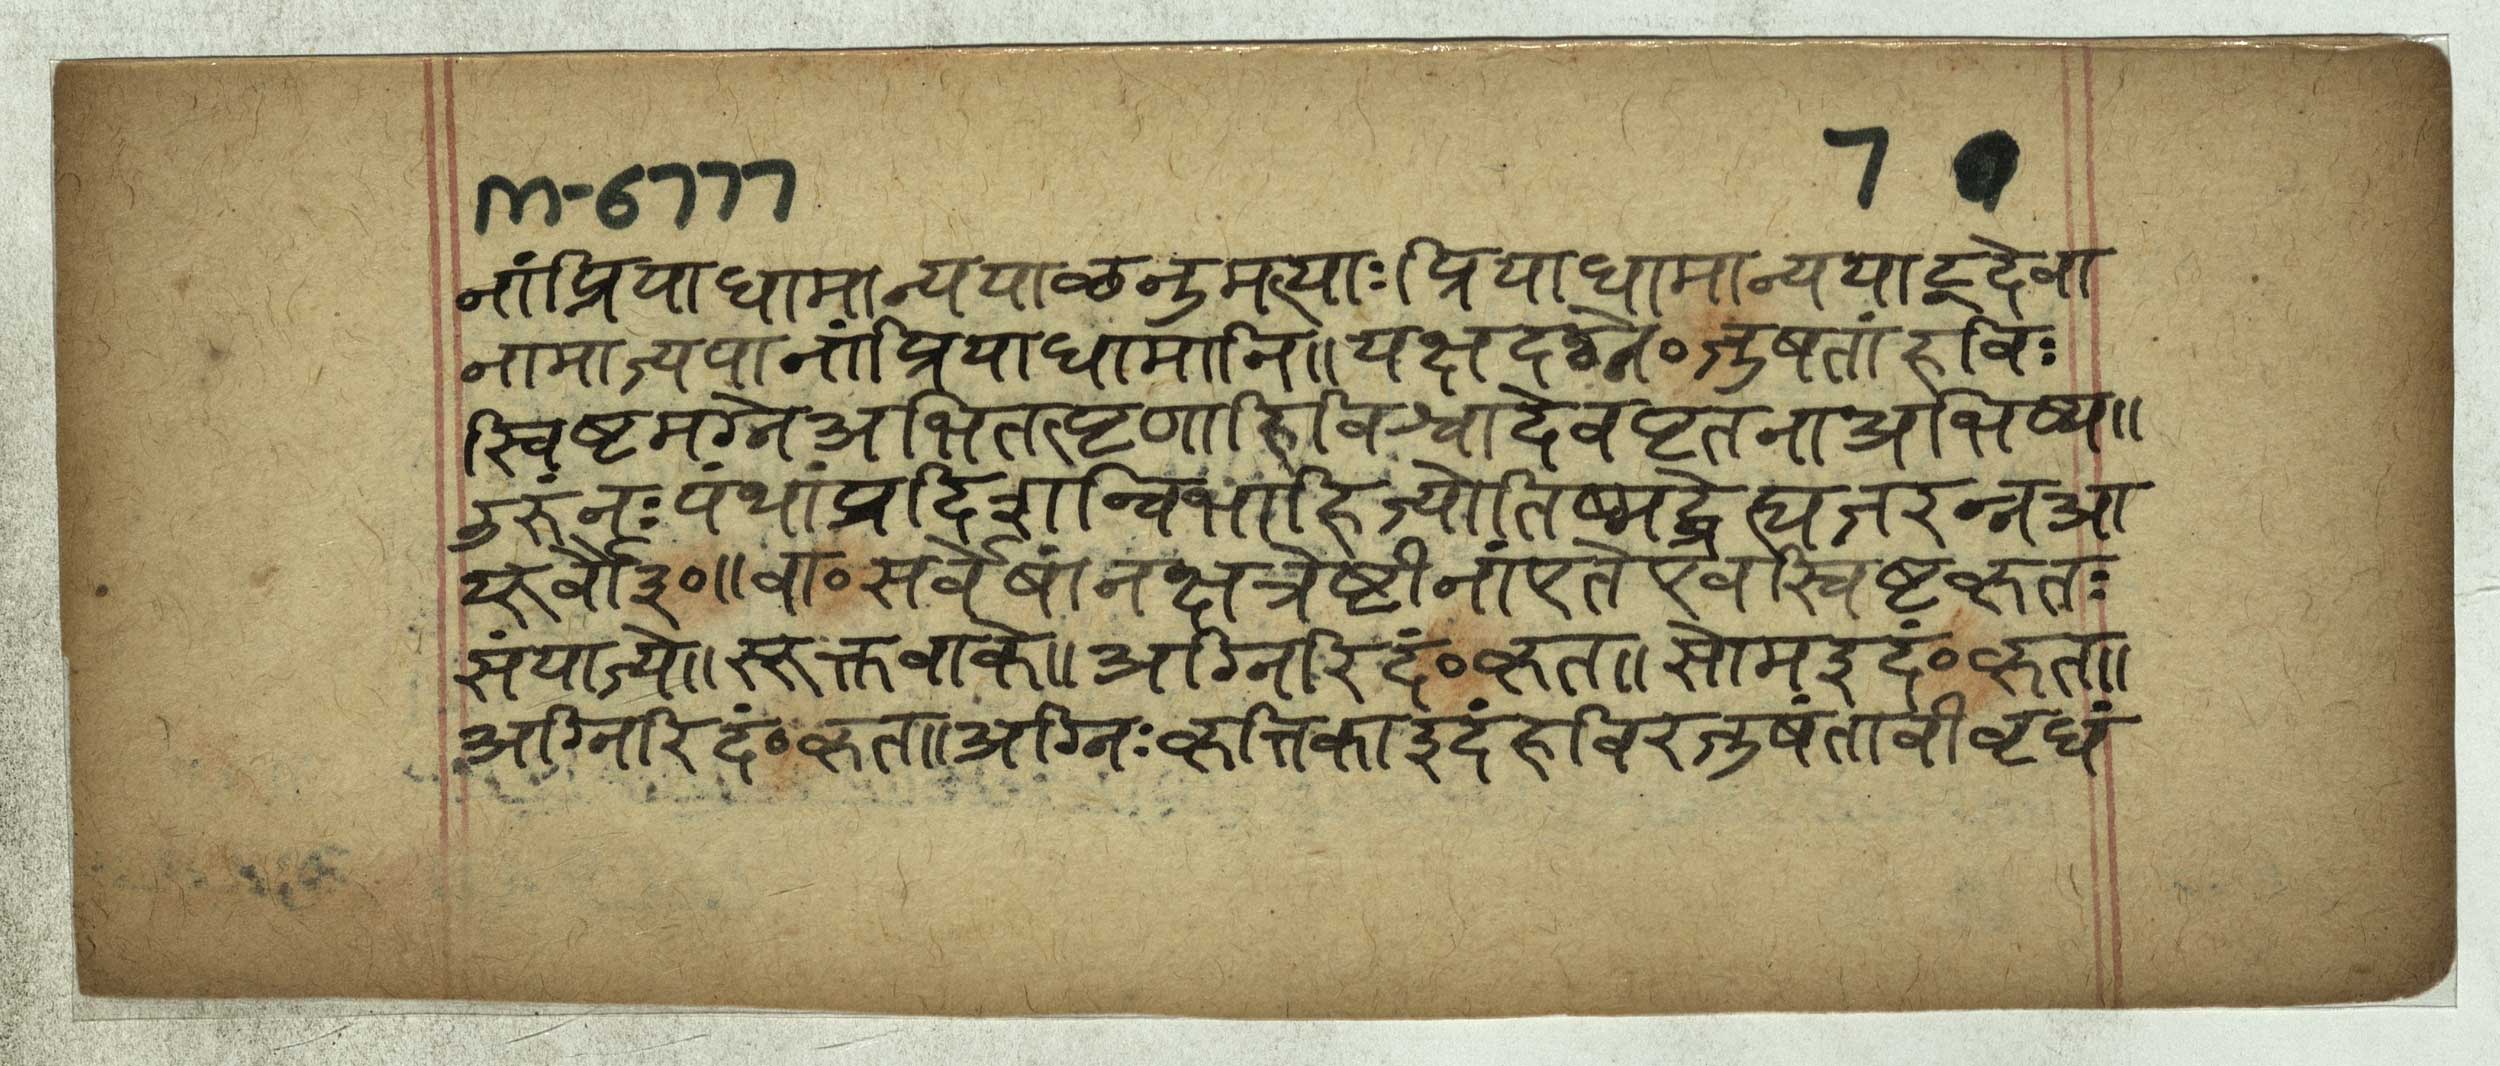 M-6777 7
नांप्रियाधामान्ययाळनुमत्याःप्रियाधामान्ययाड्देवा
नामाज्यपानांप्रियाधामानि॥यक्षदग्ने०जुषतांहविः
स्विष्टमग्नेअभितत्पृणाहिविश्वादेवपृतनाअभिष्य॥
उरुंनःपंथांप्रदिशन्विभाहिज्योतिष्मद्धेह्यजरन्नआ
यूर्वौ३०॥वा०सर्वेषांनक्षत्रेष्टीनांएतेएवस्विष्टकृतः
संयाज्ये॥सूक्तवाके॥अग्निरिदं०कृत॥सोमइदं०कृत॥
अग्निरिदं०कृत॥अग्निःकृत्तिकाइदंहविरजुषंतावीवृधं